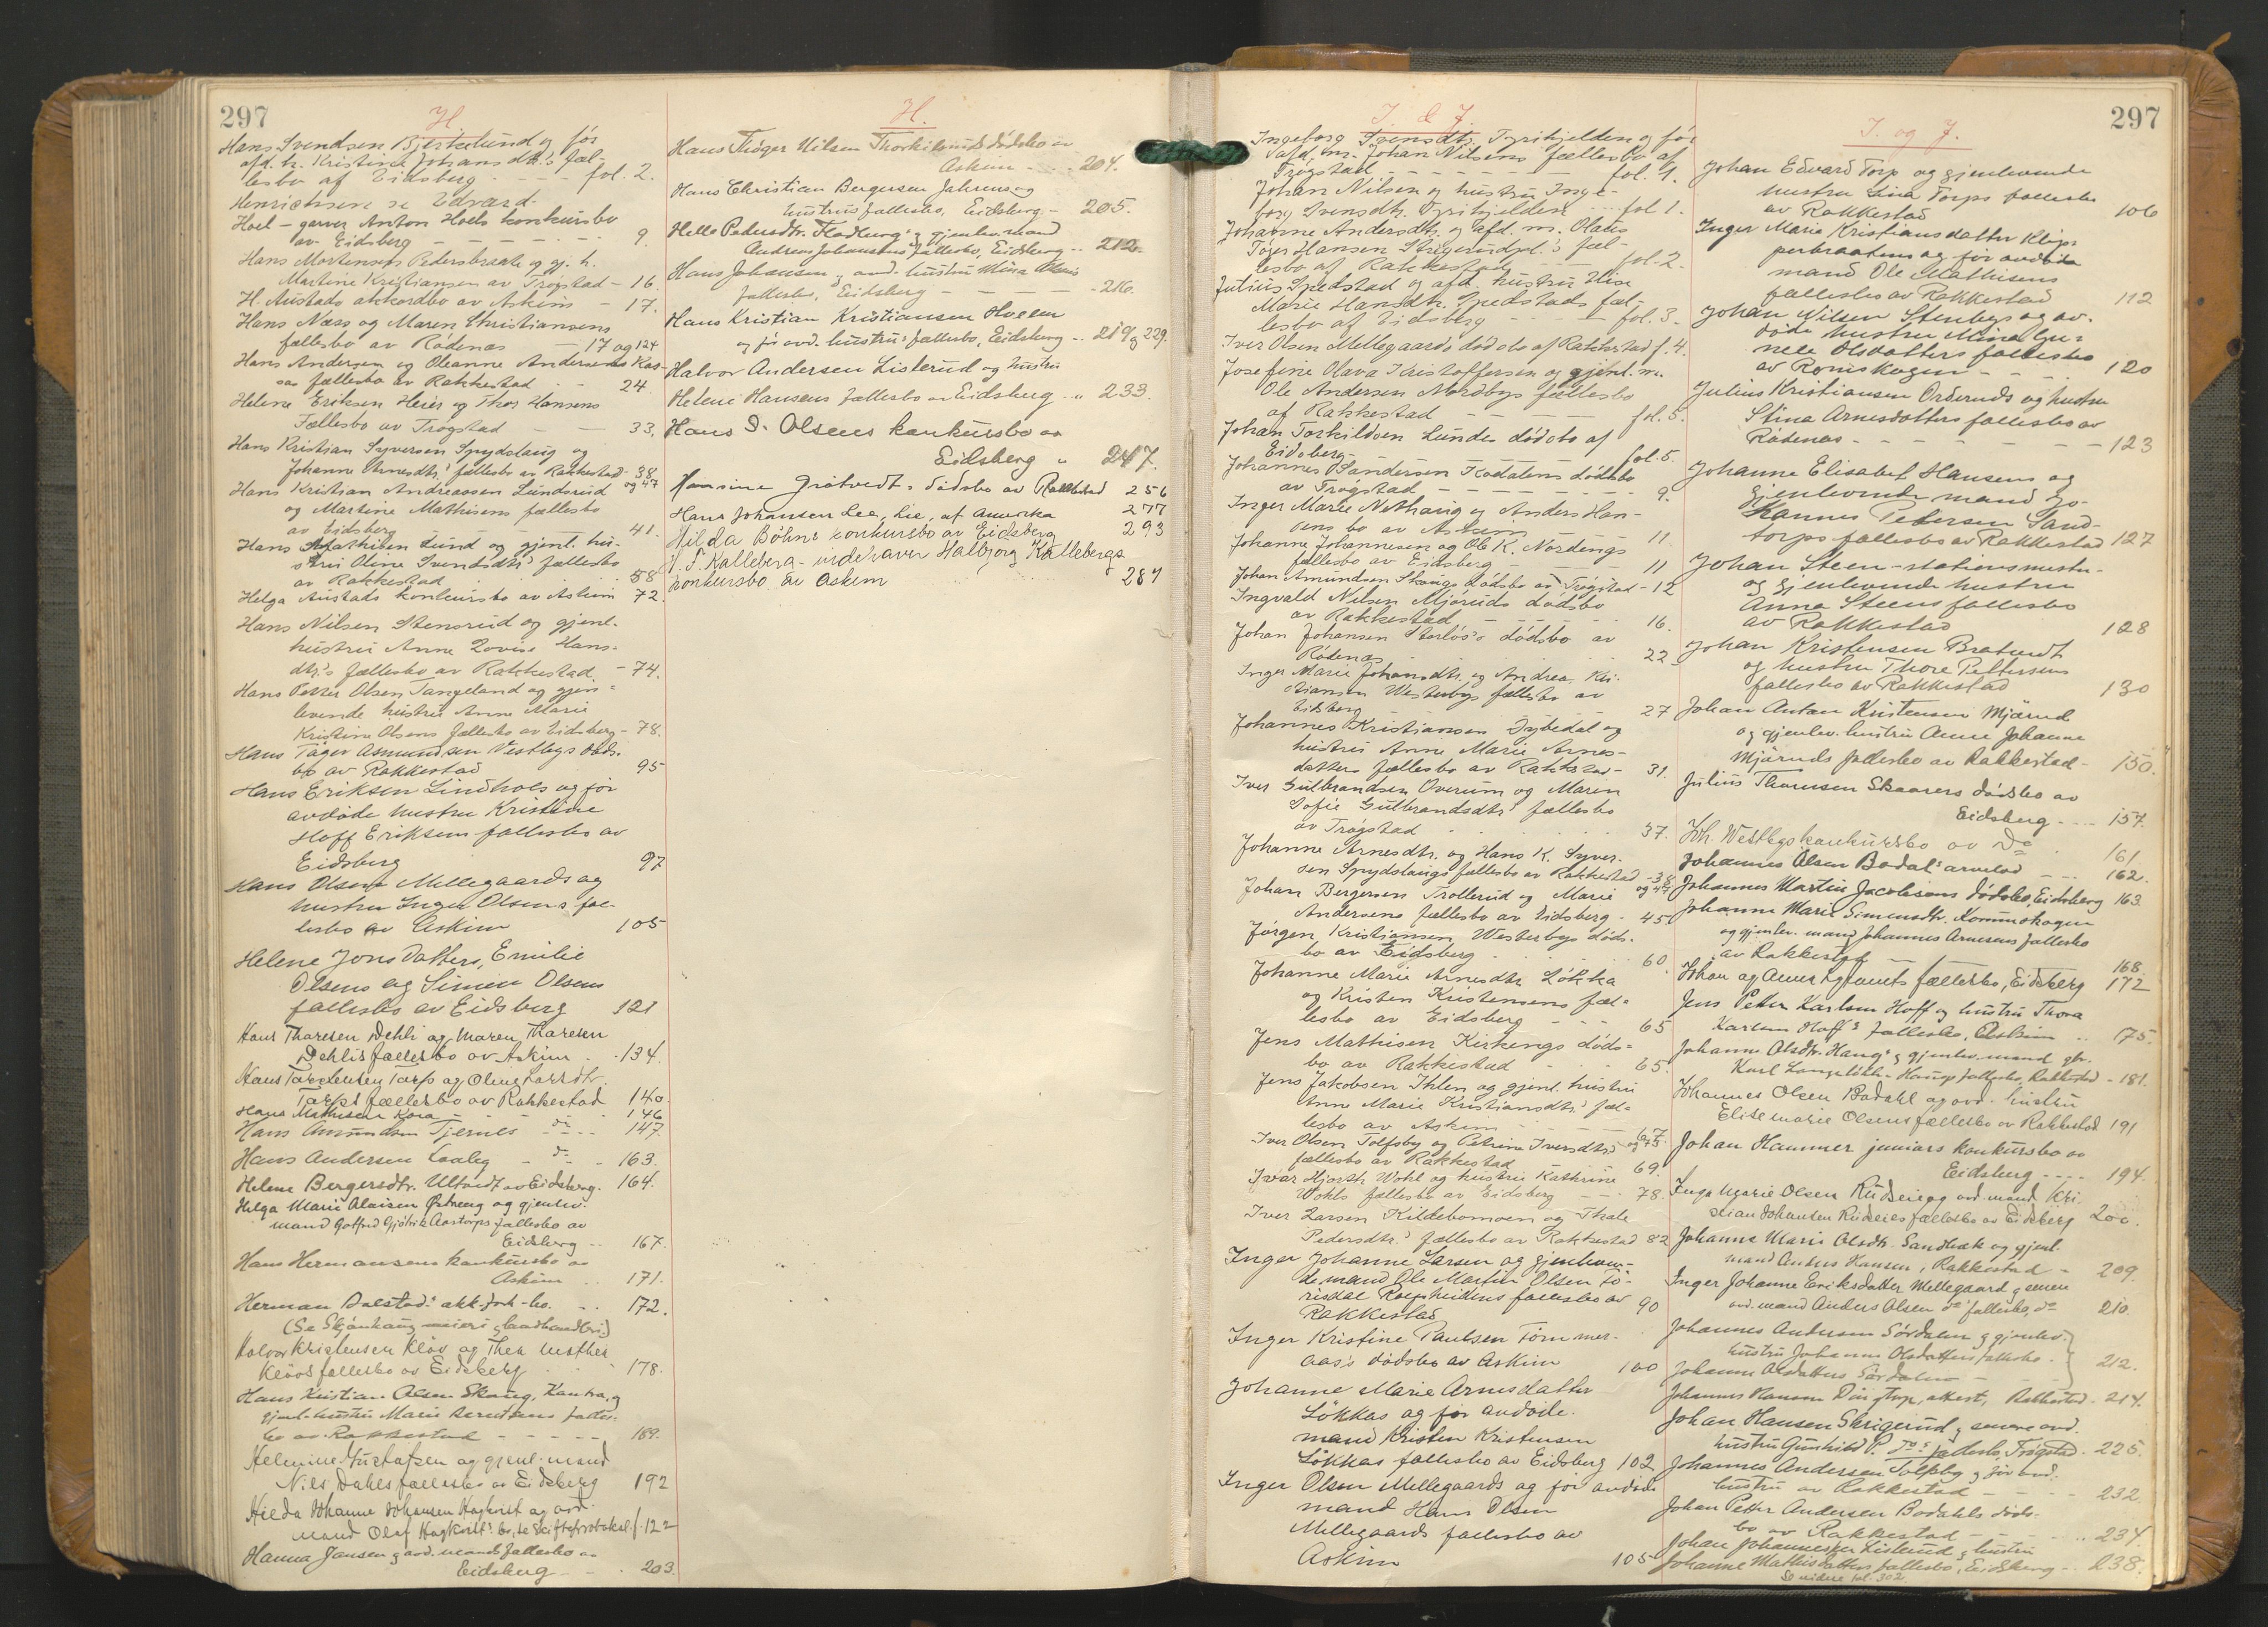 297
H.
Hans Svendsen Bjerkelund og før
afd. h. Kristine Johansdtr.s fæl-
lesbo af Eidsberg - - - fol. 2.
Henrichsen se Edvard.
Hoel - garver Anton Hoels konkursbo
av Eidsberg - - - 9.
Hans Mortensen Pedersbraate og gj. h.
Martine Kristiansen av Trøgstad - 16.
H. Austads akkordbo av Askim - 17.
Hans Næss og Maren Christiansens
fællesbo av Rødenæs - 17 og 124
Hans Andersen og Oleanne Andersens Kas-
sas fællesbo av Rakkestad - 24.
Helene Eriksen Heier og Thor Hansens
Fællesbo av Trøgstad - - 33.
Hans Kristian Syversen Spydslaug og
Johanne Arnesdtr.s fællesbo av Rakkestad - 38 og 47
Hans Kristian Andreassen Lundsrud
og Martine Mathisens fællesbo
av Eidsberg 41.
Hans Mathisen Lund og gjenl. hu-
stru Oline Svendsdtr.s fællesbo
av Rakkestad 58
Helga Austads konkursbo av Askim 72.
Hans Nilsen Stensrud og gjenl.
hustru Anne Lovise Hans-
dtr.s fællesbo av Rakkestad - 74.
Hans Petter Olsen Tangeland og gjen-
levende hustru Anne Marie
Kristine Olsens fællesbo av Eidsberg - 78.
Hans Tøger Asmundsen Vestbys døds-
bo av Rakkestad 95
Hans Eriksen Lindhols og før
avdøde hustru Kristine
Hoff Eriksens fællesbo av
Eidsberg 97
Hans Olsen Mellegaards og
hustru Inger Olsens fæl-
lesbo av Askim 105
Helene Jonsdatters, Emilie
Olsens og Simen Olsens
fællesbo av Eidsberg 121
Hans Thoresen Dehli og Maren Thoresen
Dehlis fællesbo av Askim - 134.
Hans Torp og Oline Larsdtr.
Torps fællesbo av Rakkestad 140.
Hans Mathisen Kora - - - 146
Hans Amundsen Tjernes - do - 147.
Hans Andersen Laaleg - do - 163.
Helene Bergersdtr. Ultvedt av Eidsberg. 164.
Helga Marie Olaisen Østreng og gjenlev.
mand Gotfred Gjølrik Aastorps fællesbo av
Eidsberg - 167.
Hans Hermansens konkursbo av
Askim .. 171.
Herman Dalstads akkordbo. .. 172.
(Se Skjønhaug meieri & landhandleri)
Halvor Kristensen Kløv og Thea Mathea
Kløvs fællesbo av Eidsberg 178.
Hans Kristian Olsen Skaug, og
gjenl. hustru Marie Berntsens fælles-
bo av Rakkestad - - - 189.
Helmine Gustafsen og gjenl. mand
Nils Dahles fællesbo av Eidsberg 192
Hilda Johanne Johansen Hagkvist og avd.
mand Olaf Hagkvists bo, se skifteprotokol f. 122
Hanna Jansen & avd. mands fællesbo av
Eidsberg - - 203.
H.
Hans Thøger Nilsen Thorkilsruds dødsbo av
Askim - - 204.
Hans Christian Bergersen Jahrens og
hustrus fællesbo, Eidsberg - 205.
Helle Pedersdtr. Flodberg & gjenlev. mand
Andreas Johansens fællesbo, Eidsberg - 212.
Hans Johansen & avd. hustru Mina
fællesbo, Eidsberg - - - 216.
Hans Kristian Kristiansen Hveem
og før avd. hustrus fællesbo, Eidsberg .. 219 og 229.
Halvor Andersen Listerud og hustru
Helene Hansens fællesbo av Eidsberg .. 233.
Hans D. Olsens konkursbo av
Eidsberg " 247.
Hansine Grøtvedts dødsbo av Rakkestad 256
Hans Johansen Lee, Lie, af Amerika 277
Hilda Bøhns konkursbo av Eidsberg 293
H. T. Kalleberg - indehaver Halbjørg Kallebergs
konkursbo av Askim 287
I. & J.
Ingeborg Svensdtr. Tyrihjelden og før
afd. m. Johan Nilsens fællesbo af
Trøgstad - - - fol. 1.
Johan Nilsen og hustru Inge-
borg Svensdtr. Tyrihjelden .... fol 1.
Johanne Andersdtr. og afd. m. Olaus
Tøger Hansen Skigerudpl.s fæl-
lesbo af Rakkestad - fol. 2.
Julius Spedstad og afd. hustru Elise
Marie Hansdtr. Spedstads fæl-
lesbo af Eidsberg - - - fol. 3.
Iver Olsen Mellegaards dødsbo af Rakkestad f. 4.
Josefine Olava Kristoffersen og gjenl. m.
Ole Andersen Nordbys fællesbo
af Rakkestad - - - fol. 5.
Johan Torkildsen Lundes dødsbo af
Eidsberg - - - fol. 5.
Johannes Sandersen Kodalens dødsbo
av Trøgstad - - - 9.
Inger Marie Nethaug og Anders Han-
sens bo av Askim 11.
Johanne Johannesen og Ole K. Nordengs
fællesbo av Eidsberg - 11
Johan Amundsen Skaugs dødsbo av Trøgstad - 12
Ingvald Nilsen Mjøruds dødsbo
av Rakkestad - 16.
Johan Johansen Storløs's dødsbo av
Rødenæs - 22
Inger Marie Johansdtr. og Andreas Kri-
stiansen Westerbys fællesbo av
Eidsberg 27
Johannes Kristiansen Dybedal og
hustru Anne Marie Arnes-
datters fællesbo av Rakkestad - 31.
Iver Gulbrandsen Overum og Maren
Sofie Gulbrandsdtr.s fællesbo
av Trøgstad 37.
Johanne Arnesdtr. og Hans K. Syver-
sen Spydslaugs fællesbo av Rakkestad - 38 og 47
Johan Bergersen Trollerud og Marie
Andersens fællesbo av Eidsberg - 45
Jørgen Kristiansen Westerbys døds-
bo av Eidsberg 60.
Johanne Marie Arnesdtr. Løkka
og Kristen Kristensens fæl-
lesbo av Eidsberg - - 65
Jens Mathisen Kirkengs døds-
bo av Rakkestad - - 65.
Jens Jakobsen Ihlen og gjenl. hustru
Anne Marie Kristiansdtr.s fæl-
lesbo av Askim - - 67. og 75.
Iver Olsen Tolfsby og Petrine Iversdtr.s
fællesbo av Rakkestad 69.
Ivar Hjorth Wohl og hustru Kathrine
Wohls fællesbo av Eidsberg - - 78.
Iver Larsen Kildebomoen og Thale
Pedersdtr.s fællesbo av Rakkestad 82
Inger Johanne Larsen og gjenleven-
de mand Ole Martin Olsen Fö-
risdal fællesbo av
Rakkestad 90
Inger Kristine Paulsen Tömmer-
aas's dødsbo av Askim 100
Johanne Marie Arnesdatter
Løkkas og før avdøde
mand Kristen Kristensen
Løkkas fællesbo av Eidsberg 102
Inger Olsen Mellegaards og før avdøde
mand Hans Olsen
Mellegaards fællesbo av
Askim 105
297
I. og J.
Johan Edvard Torp og gjenlevende
hustru Lina Torps fællesbo
av Rakkestad 106
Inger Marie Kristiansdatter Klop-
perbraatens og før avdøde
mand Ole Mathisens
fællesbo av Rakkestad 112
Johan Nilsen Stenbys og av-
døde hustru Mina Gu-
nele Olsdatters fællesbo
av Rømskogen - - 120
Julius Kristiansen Ordernds og hustru
Stina Arnesdatters fællesbo av
Rødenæs - - - 123
Johanne Elisabet Hansens og
gjenlevende mand Jo-
hannes Petersen Sand-
torps fællesbo av Rakkestad 127
Johan Steen - stationsmester
og gjenlevende hustru
Anna Steens fællesbo
av Rakkestad 128
Johan Kristensen Bratvedt
og hustru Thore Pettersens
fællesbo av Rakkestad 130
Johan Anton Kristensen Mjørud
og gjenlev. hustru Anne Johanne
Mjøruds fællesbo av Rakkestad - 150.
Julius Thoresen Skaarers dødsbo av
Eidsberg - - 157.
Joh. Westbys konkursbo av Do 161.
Johannes Olsen Bodals arvelod - - 162.
Johannes Martin Jacobsens dødsbo, Eidsberg 163.
Johanne Marie Simensdtr. Kommskogen
og gjenlev. mand Johannes Arnesens fællesbo
av Rakkestad - - 168.
Johan og Anne fællesbo, Eidsberg 172
Jens Petter Karlsen Hoff og hustru Thora
Karlsen Hoff's fællesbo, Askim .. 175.
Johanne Olsdtr. Haug & gjenlev. mand
Karl Langeløkk - Haugs fællesbo, Rakkestad - 181.
Johannes Olsen Bodahl og avd. hustru
Elise Marie Olsens fællesbo av Rakkestad 191
Johan Hammer juniors konkursbo av
Eidsberg - - - 194.
Inga Marie Olsen Rudsei og avd. mand Kri-
stian Johansen Rudseies fællesbo av Eidsberg 200.
Johanne Marie Olsdtr. Sandbæk og gjenl.
mand Anton Hansen, Rakkestad - 209.
Inger Johanne Eriksdatter Mellegaard & senere
avd. mand Anders Olsen do fællesbo, do 210.
Johannes Andersen Sørdalen & gjenlev.
hustru Johanne Olsdatters fællesbo. 212.
Johanne Olsdatters Sørdalen -
Johannes Hansen attest, Rakkestad - 214.
Johan Hansen Skrigerud & senere avd.
hustru Gunhild P. Do's fællesbo, Trøgstad - 225
Johannes Andersen Tolfsby & før avd.
hustru av Rakkestad - - 232.
Johan Petter Andersen Bodahls døds-
bo av Rakkestad - - .. 234.
Johan Johannesen Listerud & hustru
Johanne Mathisdatters fællesbo, Eidsberg - 238.
Se videre fol. 302.